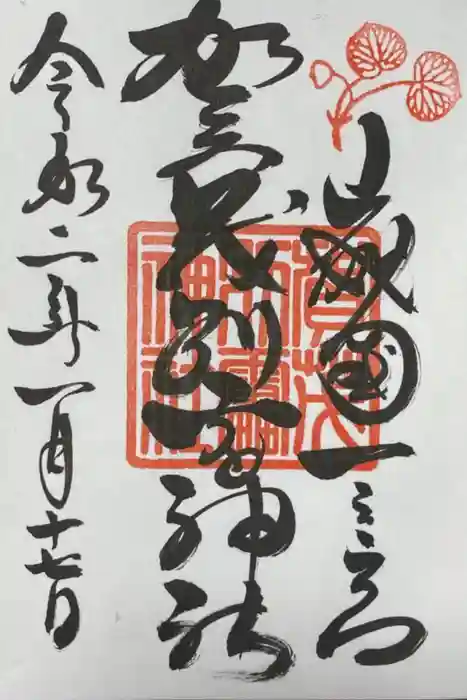 山城國一之宮
賀茂別雷神社
令和二年一月十七日
賀茂
別雷
神社